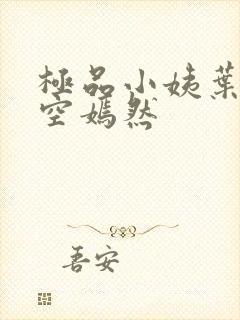 極品小姨葉
空嫣然
吾安